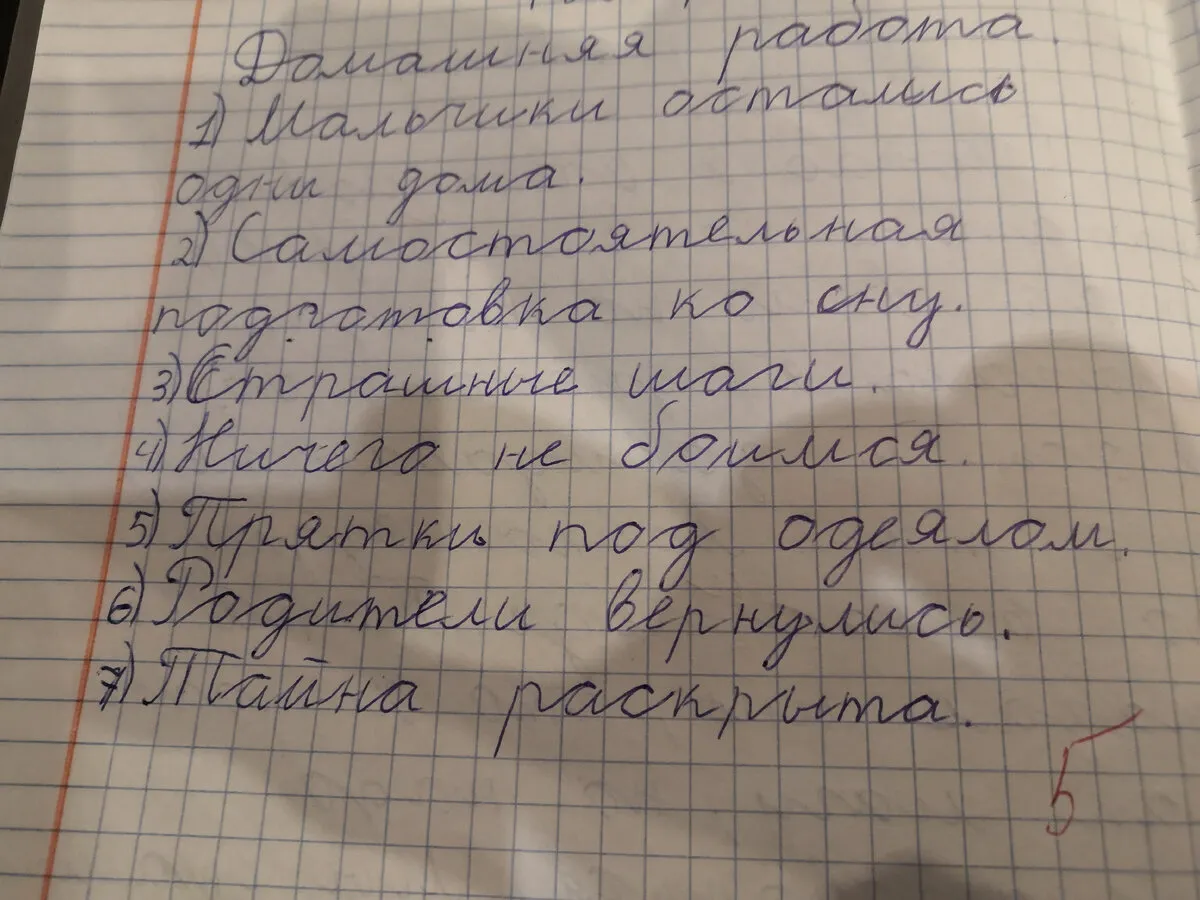 Домашняя работа.
1) Мальчики остались
одни дома.
2) Самостоятельная
подготовка ко сну.
3) Страшные шаги.
4) Ничего не боимся.
5) Прятки под одеялом.
6) Родители вернулись.
7) Тайна раскрыта.
5